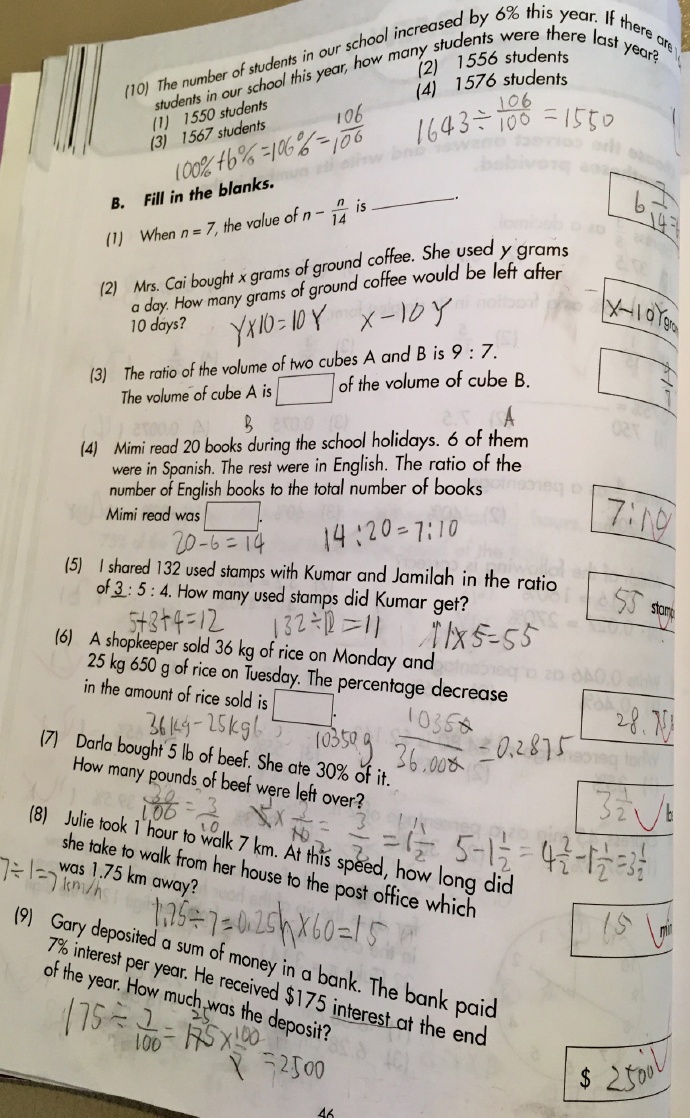 (10) The number of students in our school increased by 6% this year. If there are
students in our school this year, how many students were there last year?
(1) 1550 students
(2) 1556 students
(3) 1567 students
(4) 1576 students
100% + 6% = 106% = 106/100
1643 ÷ 106/100 = 1550
B. Fill in the blanks.
(1) When n = 7, the value of n - n/14 is ________.
(2) Mrs. Cai bought x grams of ground coffee. She used y grams
a day. How many grams of ground coffee would be left after
10 days?
Y×10=10Y X-10Y
X-10Y
(3) The ratio of the volume of two cubes A and B is 9 : 7.
The volume of cube A is
of the volume of cube B.
9/7
B A
(4) Mimi read 20 books during the school holidays. 6 of them
were in Spanish. The rest were in English. The ratio of the
number of English books to the total number of books
Mimi read was
.
20-6=14
14:20=7:10
7:10
(5) I shared 132 used stamps with Kumar and Jamilah in the ratio
of 3 : 5 : 4. How many used stamps did Kumar get?
5+3+4=12 132÷12=11 11×5=55
55
(6) A shopkeeper sold 36 kg of rice on Monday and
25 kg 650 g of rice on Tuesday. The percentage decrease
in the amount of rice sold is
.
10350g
10350/36.000 = 0.2875
(7) Darla bought 5 lb of beef. She ate 30% of it.
How many pounds of beef were left over?
30/100 = 3/10
= 3/2 = 1 1/2
5-1 1/2 = 4 2/2 - 1 1/2 = 3 1/2
3 1/2
(8) Julie took 1 hour to walk 7 km. At this speed, how long did
she take to walk from her house to the post office which
was 1.75 km away?
7÷1=7 km/h
1.75÷7=0.25h×60=15
15 min
(9) Gary deposited a sum of money in a bank. The bank paid
7% interest per year. He received $175 interest at the end
of the year. How much was the deposit?
175 ÷ 7/100 = 175 × 100/7 = 2500
25
$ 2500
46